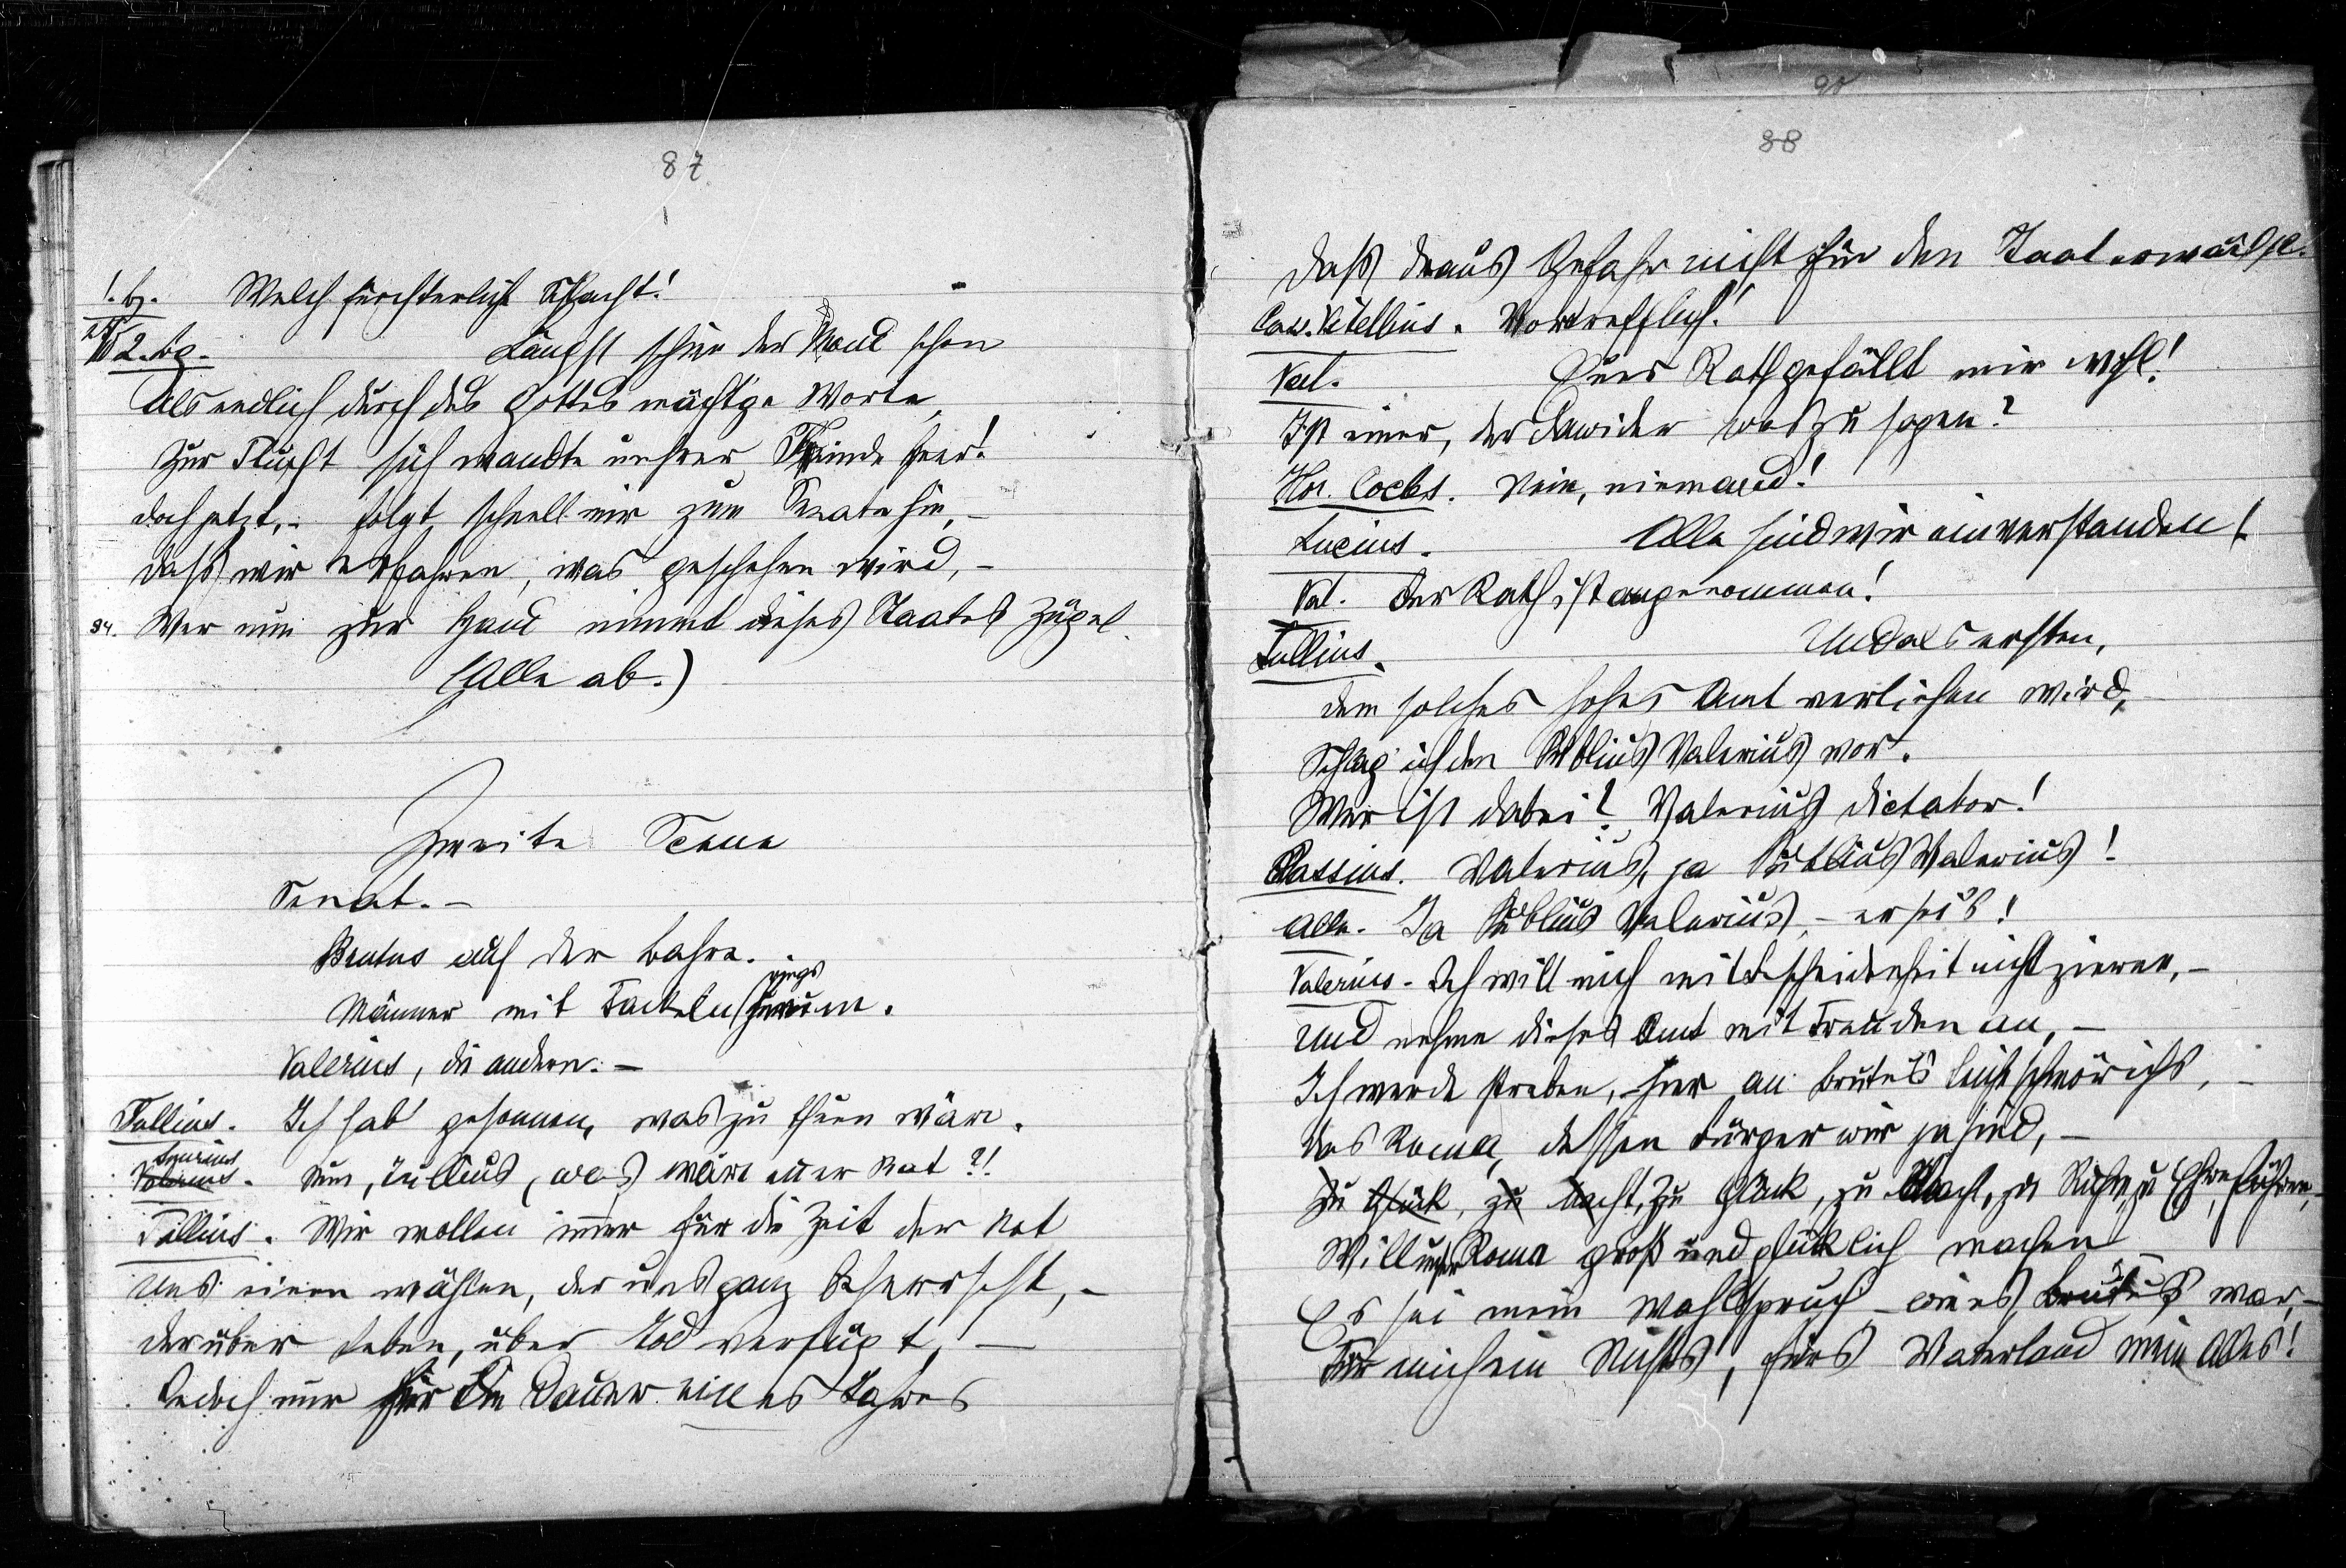 87.
1. B. Welch fürchterliche Schlacht!
2. Bg. Längst schien der Mond schon
Als endlich durch des Gottes mächt'ge Worte,
Zur Flucht sich wandte unsrer Feinde Heer!
doch jetzt, - folgt schnell mir zum Senate hin, -
daß wir erfahren, was geschehen wird, -
34. Wer nun zur Hand nimmt dieses Staates Zügel.
(Alle ab.)
Zweite Scene
Senat. -
Brutus auf der Bahre.
rings
Männer mit Fackeln herum.
Valerius, die andern. -
Tullius. Ich hab' gesonnen, was zu thun wäre.
Valerius. Nun, Tullius, was wäre euer Rat?!
Tullius. Wir wollen immer für die Zeit der Not
Uns einen wählen, der uns ganz beherrscht, -
der über Leben, über Tod verfügt, -
Jedoch nur für die Dauer eines Jahres
90
88
daß draus Gefahr nicht für den Staat erwächst.
Vitellius. Vortrefflich!
Val. Euer Rath gefällt mir wohl!
Ist einer, der dawider was zu sagen?
Hor. Cocles. Nein, niemand!
Lucius. Alle sind wir einverstanden!
Val. der Rath ist angenommen!
Tullius. Und als ersten,
dem solches hohes Amt verliehen wird, -
Schlag' ich den Publius Valerius vor.
Wer ist dabei? Valerius Dictator!
Cassius. Valerius, ja Publius Valerius!
Alle. Ja Publius Valerius, - er sei's!
Valerius. Ich will mich mit Bescheidenheit nicht zieren, -
Und nehme dieses Amt mit Freuden an, -
Ich werde streben, hier an Brutus Leich' schwör ichs, -
das Roma, dessen Bürger wir ja sind, -
zu Glück, zu Macht, zu Glück, zu Macht, zu Ruhm, zu Ehre führen, -
Will unser Roma groß und glücklich machen
Es sei mein Wahlspruch - wie es Brutus war, -
Für mich ein Nichts, fürs Vaterland mein Alles!